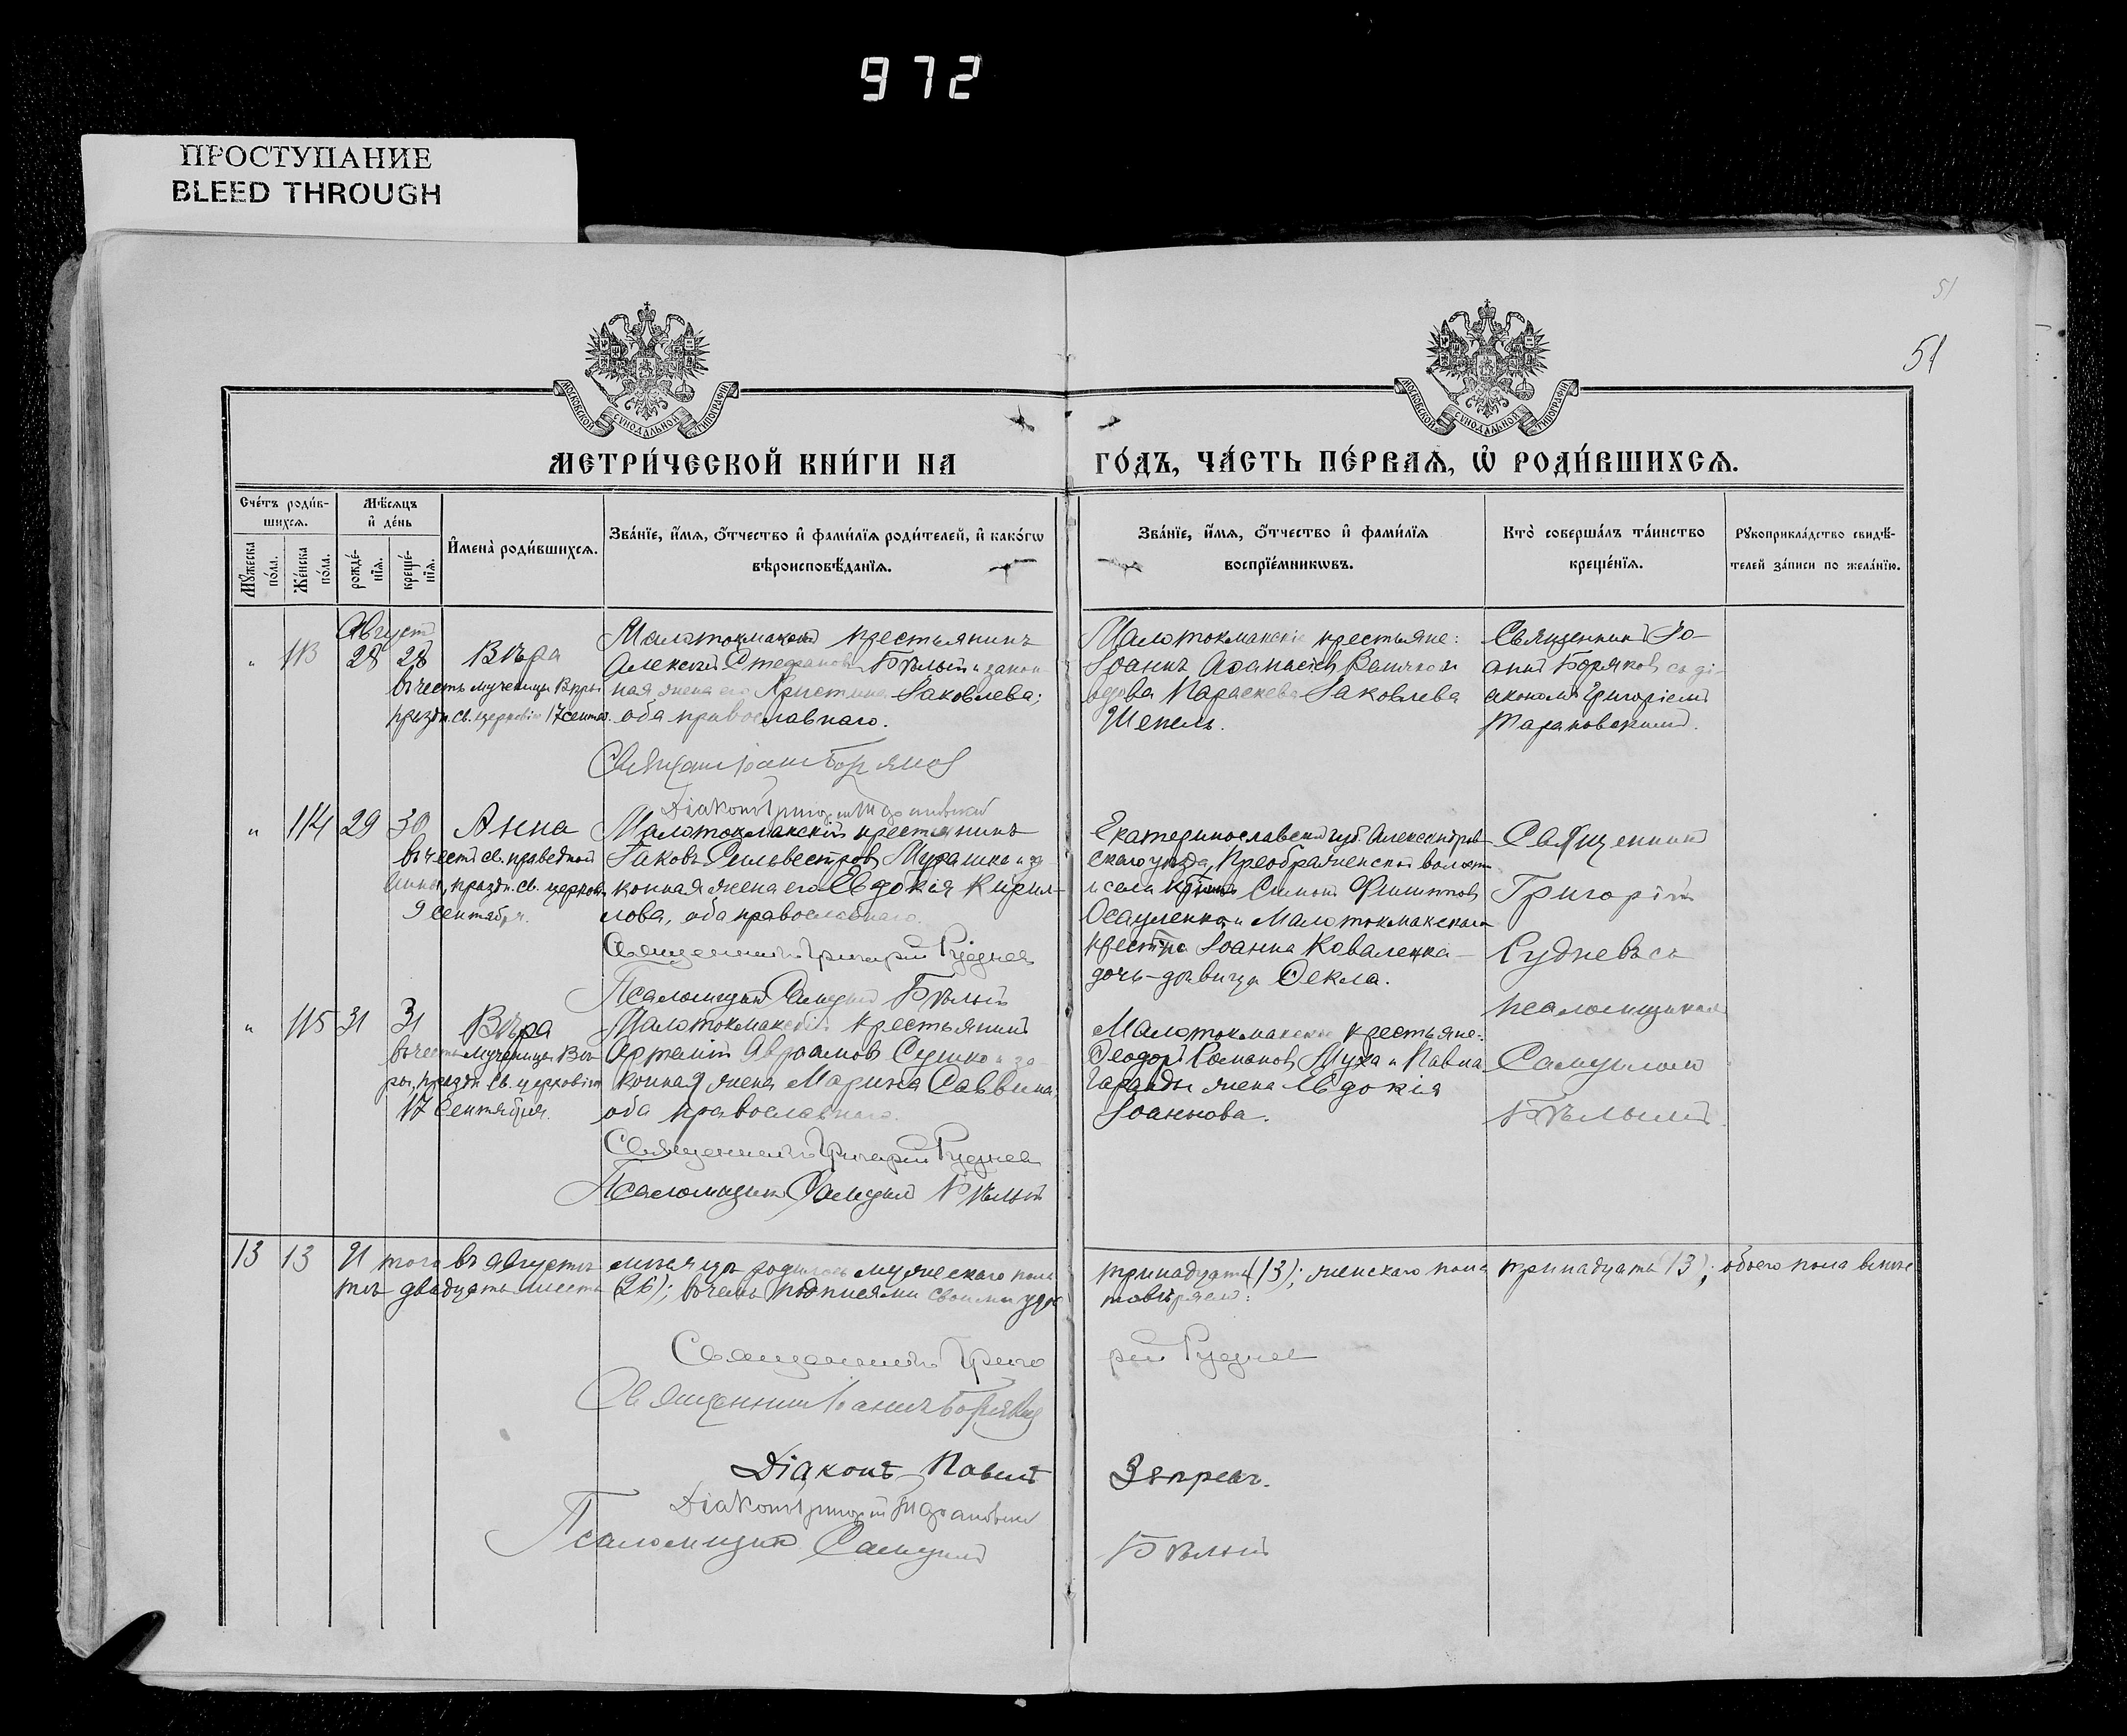 972
ПРОСТУПАНИЕ
BLEED THROUGH
51
51
МОСКОВСКОЙ СѴНОДАЛЬНОЙ ТИПОГРАФІИ
МОСКОВСКОЙ СѴНОДАЛЬНОЙ ТИПОГРАФІИ
МЕТРИ́ЧЕСКОЙ КНИ́ГИ НА ГО́ДЪ, ЧА́СТЬ ПЕ́РВАѦ, Ѡ҆ РОДИ́ВШИХСѦ.
Сче́тъ роди́в-
шихсѧ.
Мꙋ́жеска по́ла.
Же́нска по́ла.
Мѣ́сѧцъ
и҆ де́нь
рожде́-нїѧ.
креще́-нїѧ.
И҆мена̀ роди́вшихсѧ.
Зва́нїе, и҆́мѧ, ѻ҆́тчество и҆ фами́лїѧ роди́телей, и҆ како́гѡ
вѣроисповѣ́данїѧ.
Зва́нїе, и҆́мѧ, ѻ҆́тчество и҆ фами́лїѧ
воспрїе́мникѡвъ.
Кто̀ соверша́лъ та́инство
креще́нїѧ.
Рꙋкоприкла́дство свидѣ́-
телей за́писи по жела́нїю.
Августъ
" 113 28 28 Вѣра
въ честь мученицы Вѣры
праздн. св. церковію 17 сентяб.
Малотокмакскій крестьянинъ
Алексѣй Стефановъ Бѣлый и закон
ная жена его Христина Іаковлева;
оба православнаго.
Священникъ Іоаннъ Боряковъ
Діаконъ Григорій Тарановскій
Малотокмакскіе крестьяне:
Іоаннъ Аѳанасіевъ и
вдова Параскева Іаковлева
Шепель.
Священникъ Іо-
аннъ Боряковъ съ ді-
акономъ Григоріемъ
Тарановскимъ.
" 114 29 30 Анна
въ честь св. праведной
Анны, праздн. св. церковію
9 сентября.
Малотокмакскій крестьянинъ
Іаковъ Сильвестровъ Мурашко и за-
конная жена его Евдокія Кирил-
лова, оба православнаго.
Священникъ Григорій Рудневъ
Псаломщикъ Самуилъ Бѣлый
Екатеринославской губ. Александров-
скаго уѣзда, Преображенской волости
и села Симонъ Филипповъ
Осауленко и Малотокмакскаго
крест-на Іоанна Коваленка -
дочь - дѣвица Ѳекла.
Священникъ
Григорій
Рудневъ съ
псаломщикомъ
Самуиломъ
Бѣлымъ
" 115 31 31 Вѣра
въ честь мученицы Вѣ-
ры, праздн. св. церковію
17 Сентября.
Малотокмакскій крестьянинъ
Артемій Авраамовъ Сушко и за-
конная жена Марина Саввина,
оба православнаго.
Священникъ Григорій Рудневъ
Псаломщикъ Самуилъ Бѣлый
Малотокмакскіе крестьяне:
Ѳеодоръ Романовъ Муха и Павла
Гаранды жена Евдокія
Іоаннова.
13 13 Итого въ августѣ мѣсяцѣ родилось мужескаго пола тринадцать (13); женскаго пола тринадцать (13); обоего пола вмѣс-
тѣ двадцать шесть (26); въ чемъ подписями своими удос товѣряемъ:
Священникъ Григо рій Рудневъ
Священникъ Іоаннъ Боряковъ
Діаконъ Павелъ
Діаконъ Григорій Тарановскій
Псаломщикъ Самуилъ Бѣлый